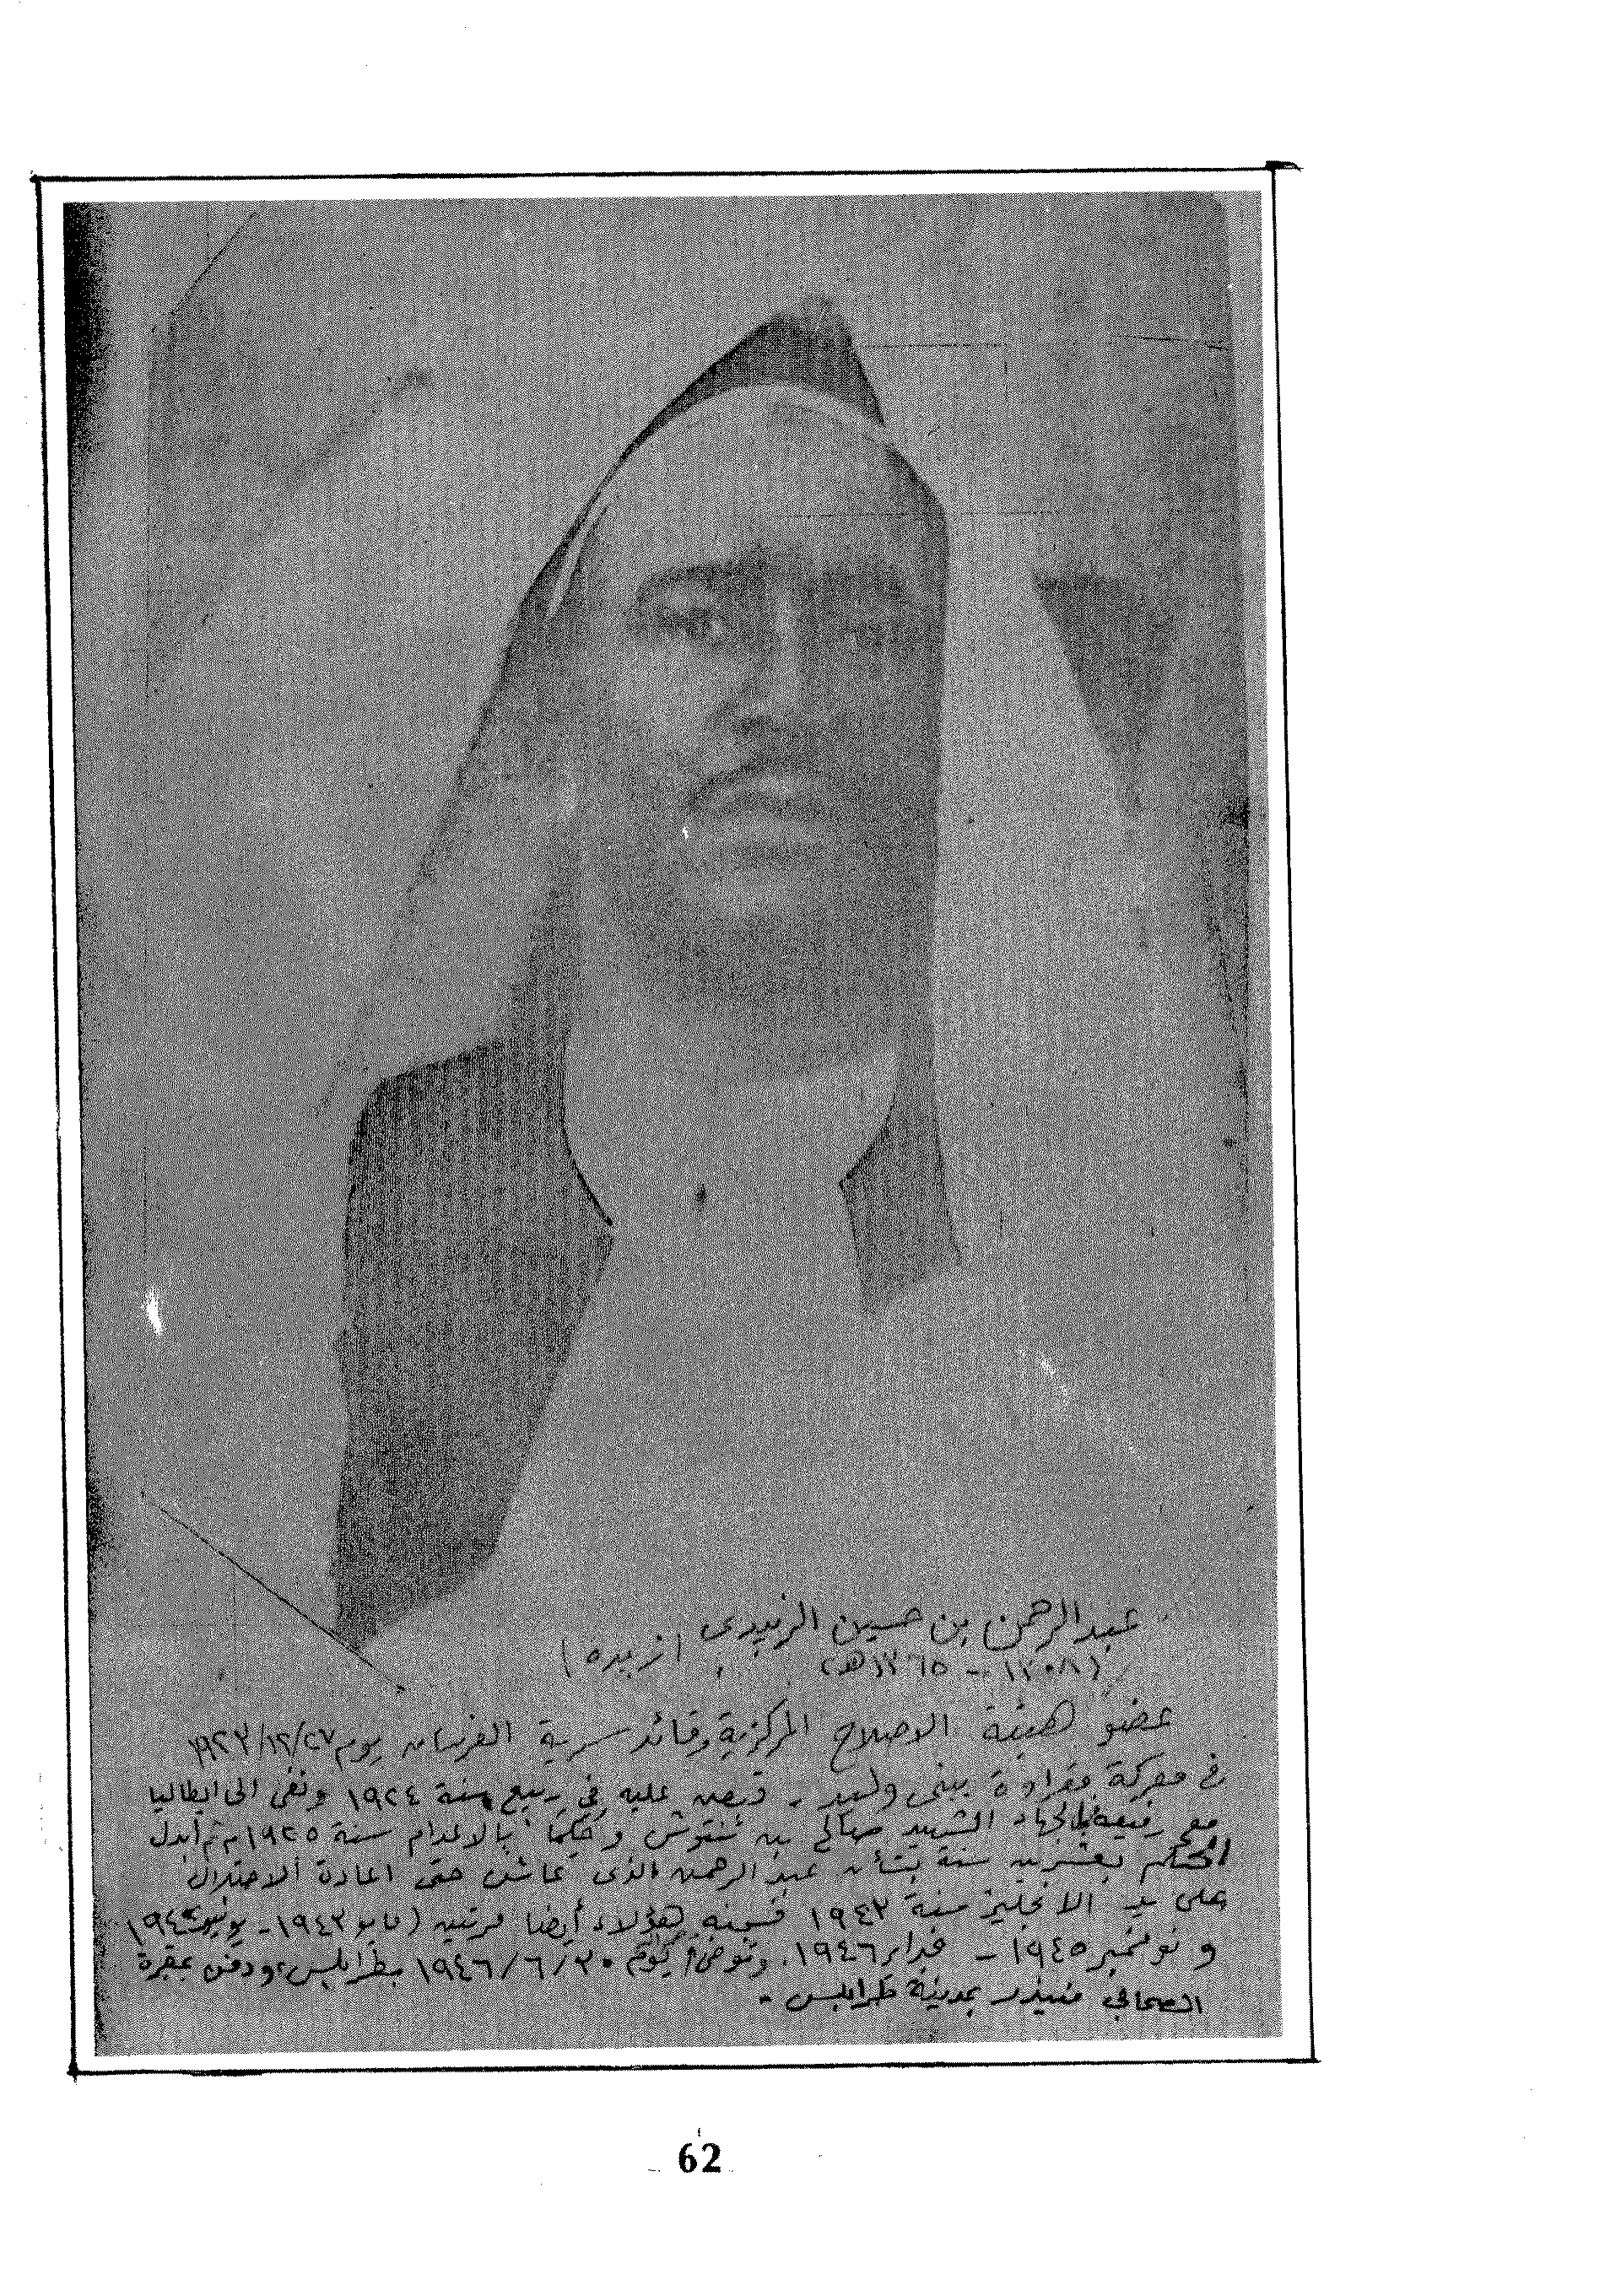 عبدالرحمن بن حسين الزبيدى (زبيده)
(١٣٠٨ - ١٣٦٥هـ)
عضو هيئة الاصلاح المركزية وقائد سرية الفرسان يوم ١٩٢٣/١٢/٢٧
فى معركة بنى وليد . قبض عليه فى ربيع سنة ١٩٢٤ ونفى الى ايطاليا
مع رفيقه الشهيد صالح بن وحكما بالاعدام سنة ١٩٢٥م ثم أبدل
الحكم بعشرين سنة بشأن عبد الرحمن الذى عاش حتى اعادة الاحتلال
على يد الانجليز سنة ١٩٤٣ فسجنه هؤلاء أيضا مرتين (مايو ١٩٤٣ - يونيو
و نوفمبر ١٩٤٥ - فبراير ١٩٤٦ وتوفى يوم ١٩٤٦/٦/٣٠ بطرابلس، ودفن بمقبرة
الصحابي منيذر بمدينة طرابلس .
62